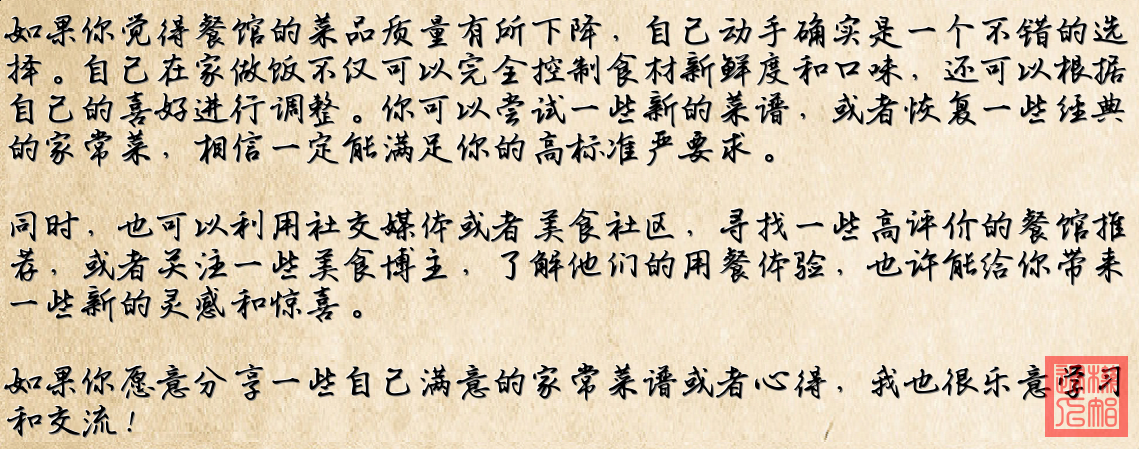 如果你觉得餐馆的菜品质量有所下降，自己动手确实是一个不错的选
择。自己在家做饭不仅可以完全控制食材新鲜度和口味，还可以根据
自己的喜好进行调整。你可以尝试一些新的菜谱，或者恢复一些经典
的家常菜，相信一定能满足你的高标准严要求。
同时，也可以利用社交媒体或者美食社区，寻找一些高评价的餐馆推
荐，或者关注一些美食博主，了解他们的用餐体验，也许能给你带来
一些新的灵感和惊喜。
如果你愿意分享一些自己满意的家常菜谱或者心得，我也很乐意学习
和交流！